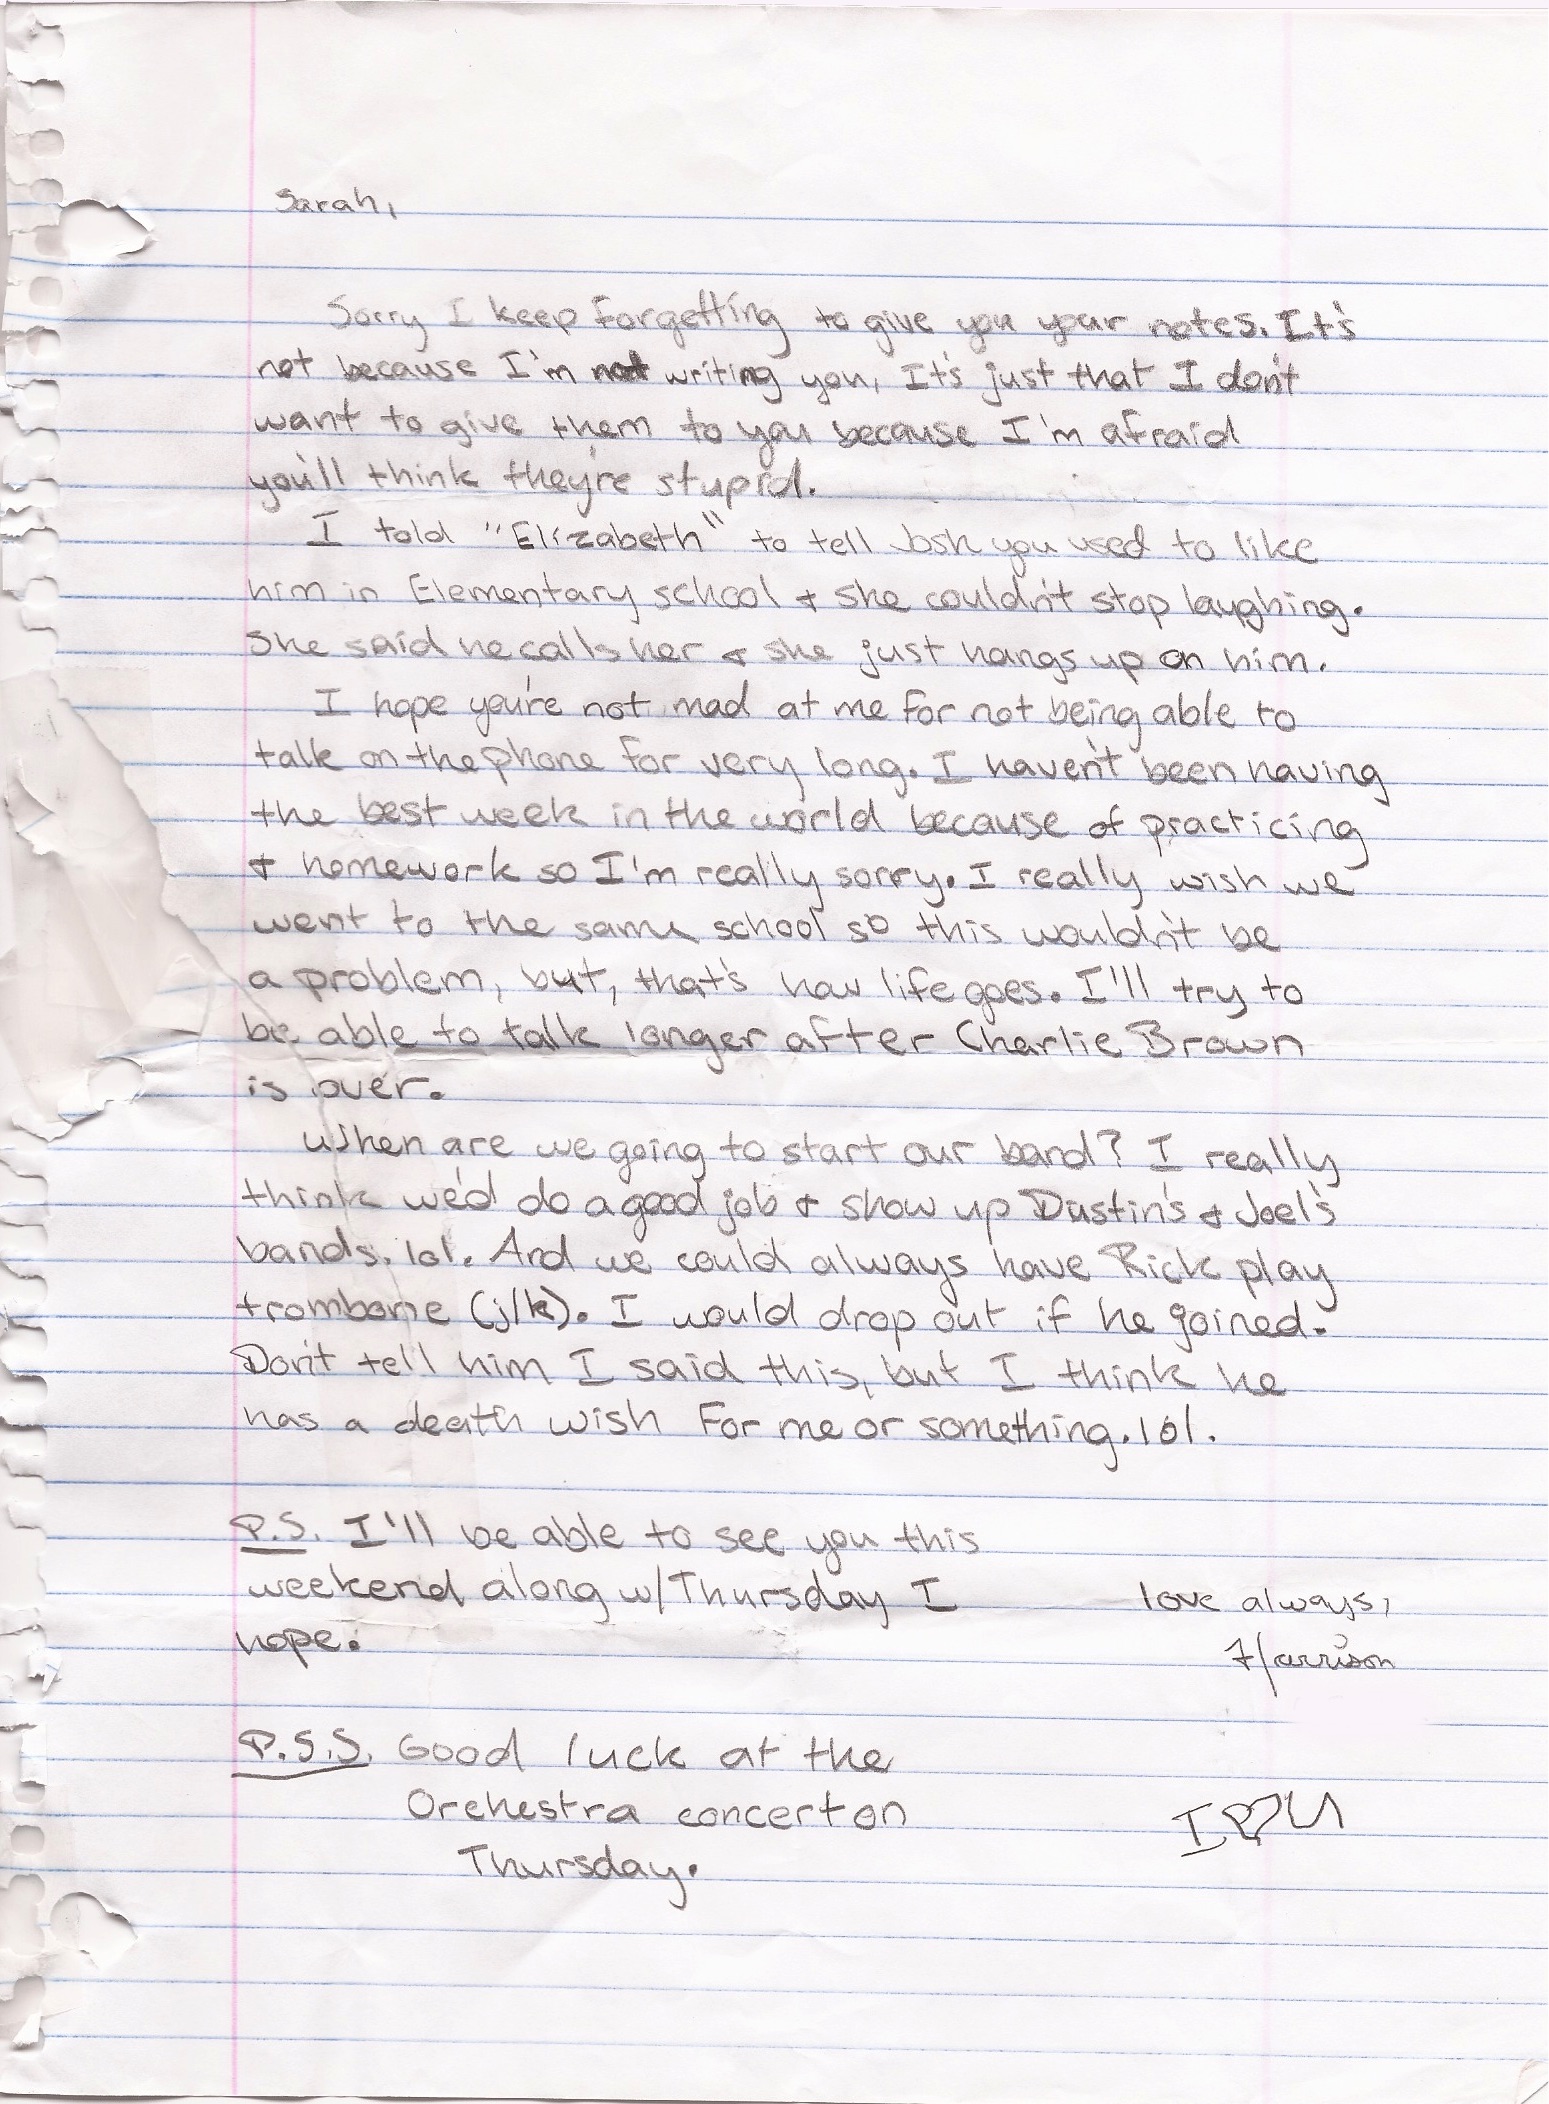 Sarah,
Sorry I keep forgetting to give you your notes. It's
not because I'm not writing you, It's just that I don't
want to give them to you because I'm afraid
you'll think they're stupid.
I told "Elizabeth" to tell Josh you used to like
him in Elementary school & she couldn't stop laughing.
She said he calls her & she just hangs up on him.
I hope you're not mad at me for not being able to
talk on the phone for very long. I haven't been having
the best week in the world because of practicing
& homework so I'm really sorry. I really wish we
went to the same school so this wouldn't be
a problem, but, that's how life goes. I'll try to
be able to talk longer after Charlie Brown
is over.
When are we going to start our band? I really
think we'd do a good job & show up Dustin's & Joel's
bands. lol. And we could always have Rick play
trombone (j/k). I would drop out if he joined.
Don't tell him I said this, but I think he
has a death wish for me or something. lol.
P.S. I'll be able to see you this
weekend along w/Thursday I
hope.
love always,
Harrison
P.S.S. Good luck at the
Orchestra concert on
Thursday.
I ♡ U